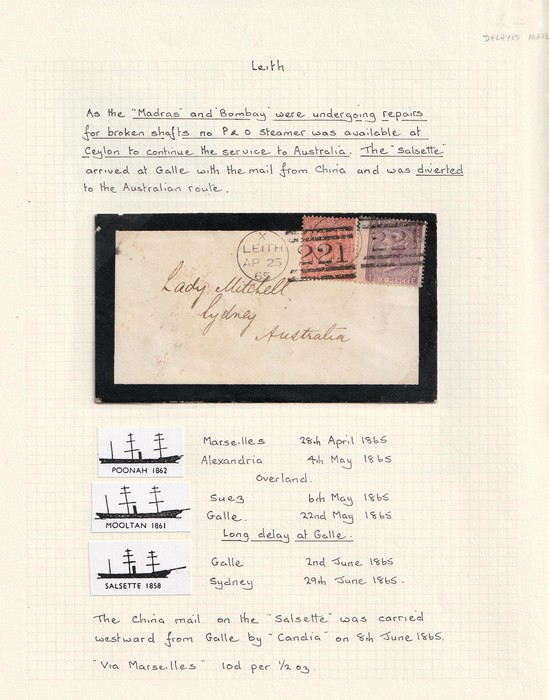 DELAYED MAIL
Leith
As the "Madras" and "Bombay" were undergoing repairs
for broken shafts no P & O steamer was available at
Ceylon to continue the service to Australia. The "Salsette"
arrived at Galle with the mail from China and was diverted
to the Australian route.
X
LEITH
AP 25
65
221
22
Lady Mitchell
Sydney
Australia
Marseilles 28th April 1865
POONAH 1862
Alexandria 4th May 1865
Overland.
Suez 6th May 1865
MOOLTAN 1861
Galle. 22nd May 1865
Long delay at Galle.
Galle 2nd June 1865
SALSETTE 1858
Sydney 29th June 1865.
The China mail on the "Salsette" was carried
westward from Galle by "Candia" on 8th June 1865.
"Via Marseilles" 10d per 1/2 oz